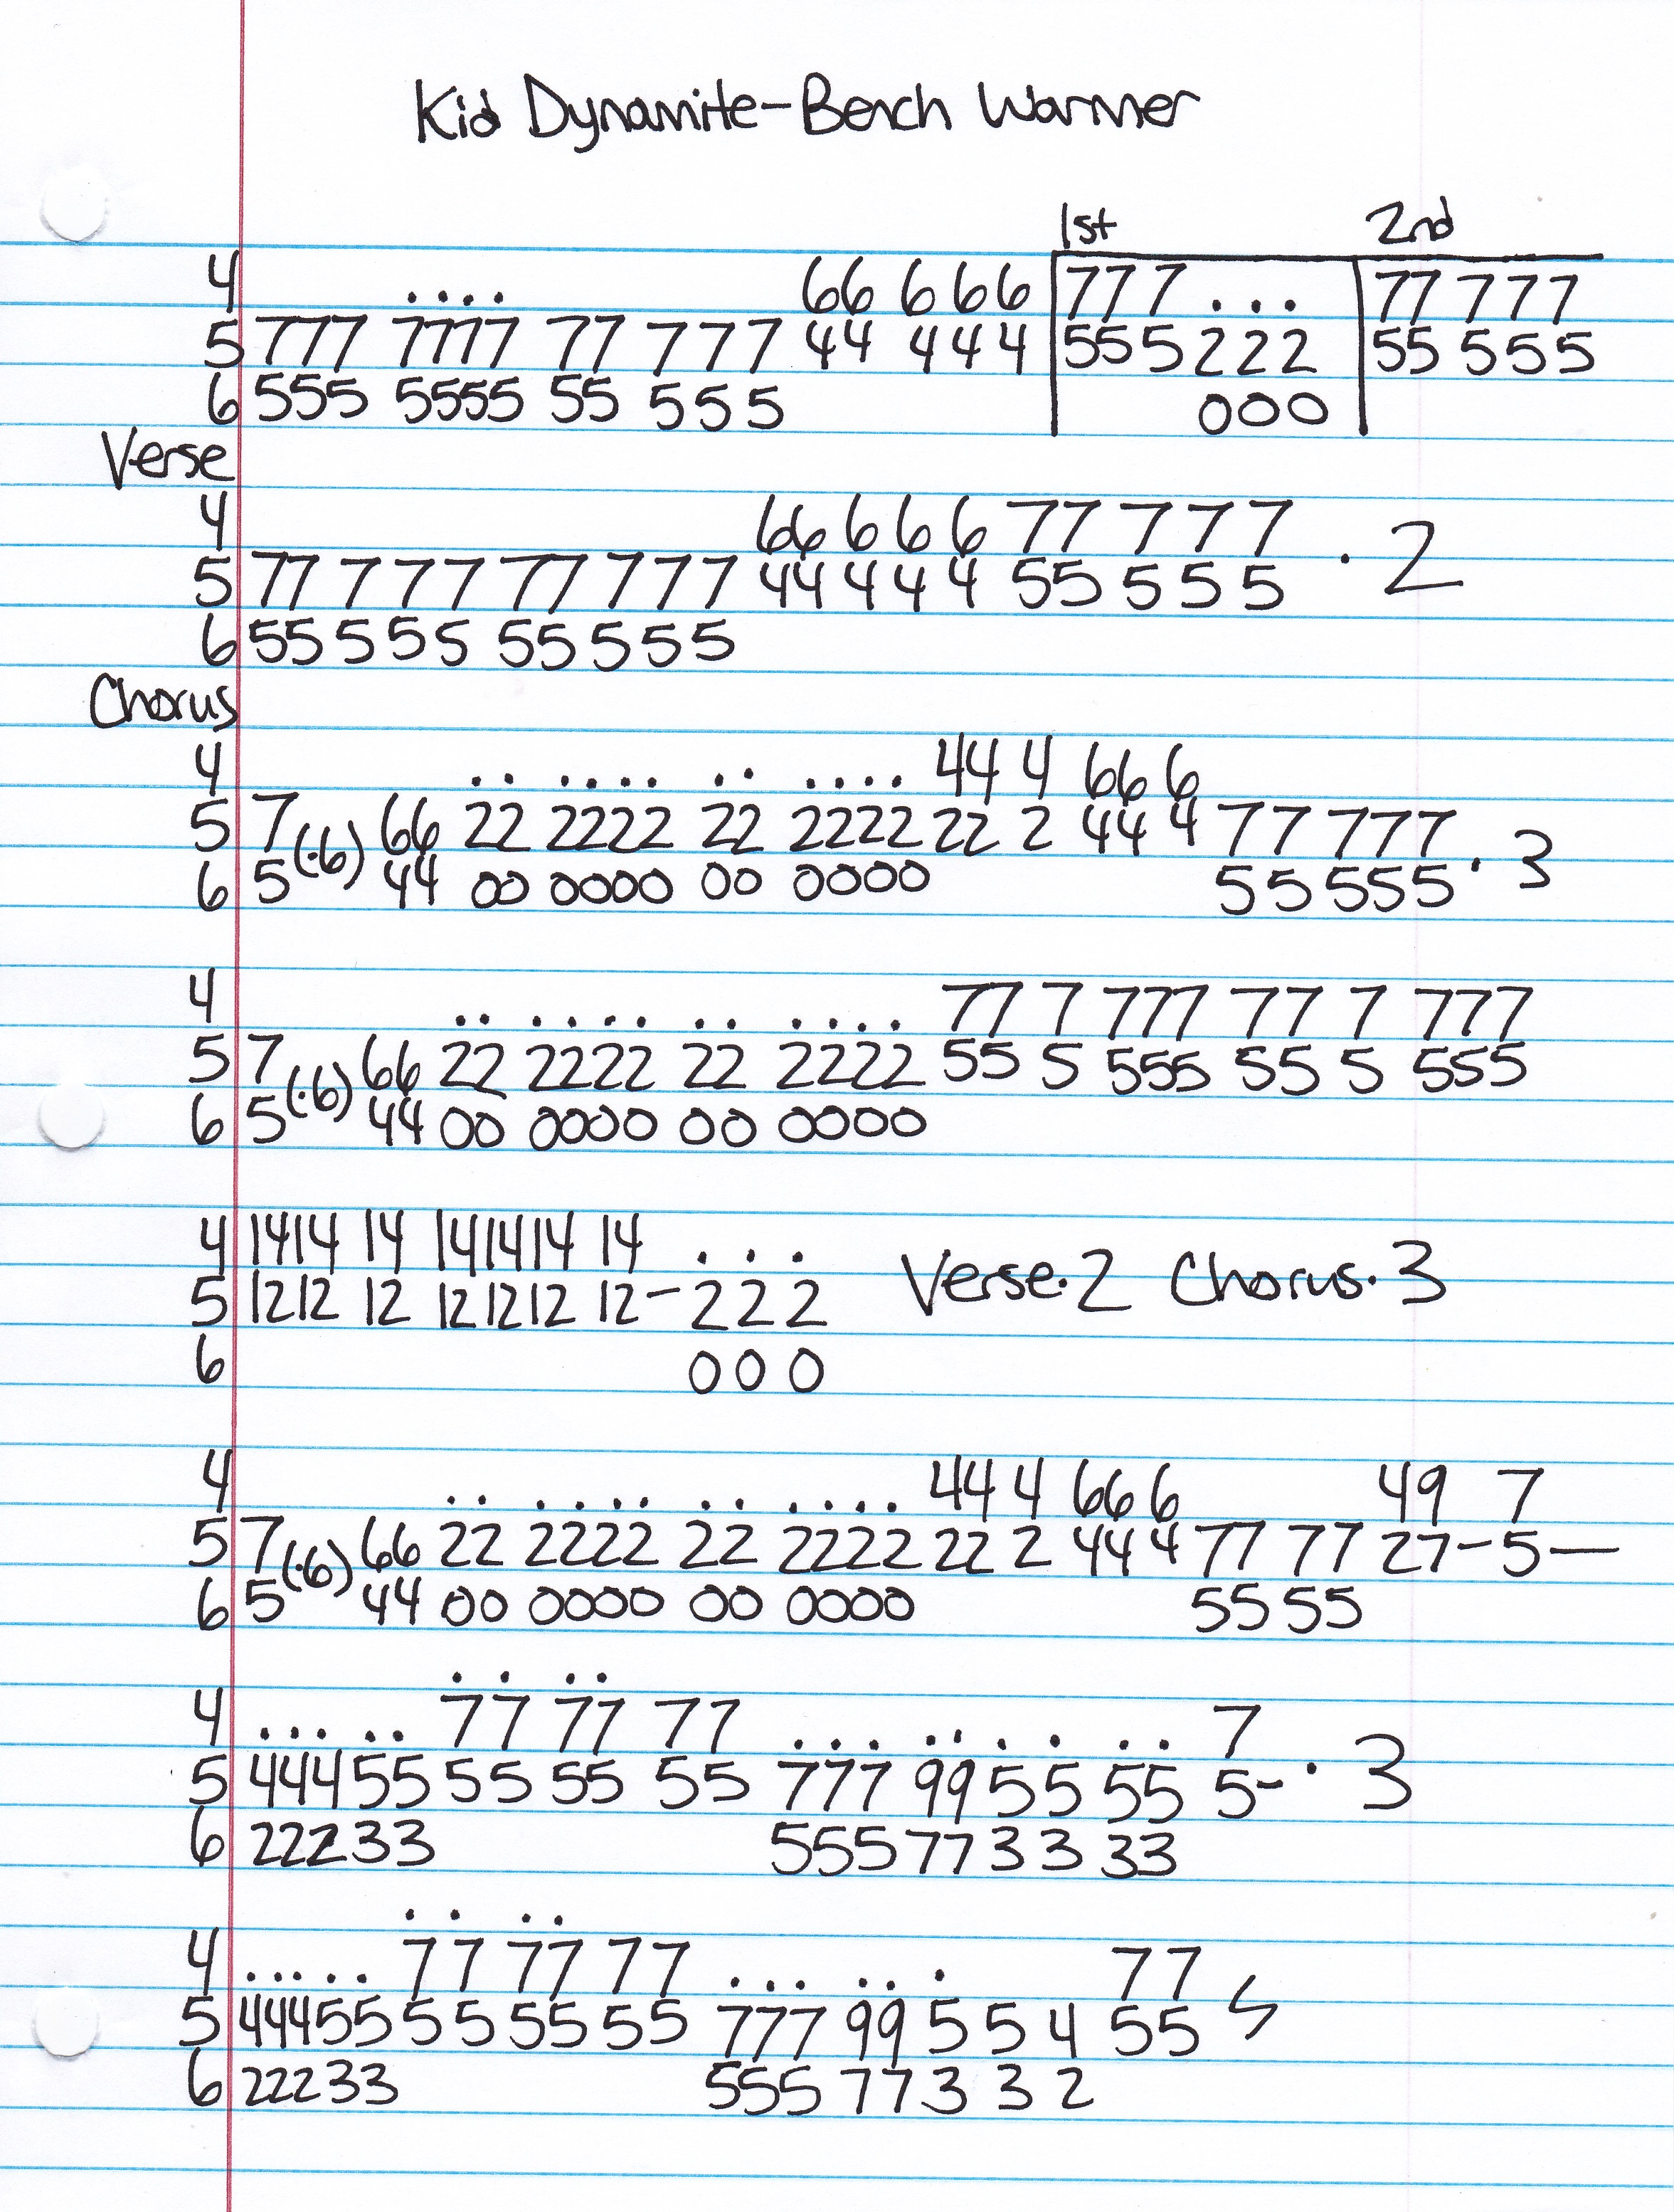 Kid Dynamite-Bench Warmer
1st 2nd
4 .... 66 6 66 777 ... 77 777
5 777 7777 77 777 44 444 555 222 55 555
6 555 5555 55 555 000
Verse
4 66 6 6 6 77 7 7 7
5 77 7 7 7 77 7 7 7 44 4 4 4 55 5 5 5 · 2
6 55 5 5 5 55 5 5 5
Chorus
4 .. .... .. .... 44 4 66 6
5 7 (·6) 66 22 2222 22 2222 22 2 44 4 77 777 · 3
6 5 44 00 0000 00 0000 55 555
4 .. .... .. .... 77 7 777 77 7 777
5 7 (·6) 66 22 2222 22 2222 55 5 555 55 5 555
6 5 44 00 0000 00 0000
4 1414 14 141414 14 . . .
5 1212 12 121212 12- 2 2 2 Verse·2 Chorus·3
6 0 0 0
4 .. .... .. .... 44 4 66 6 49 7
5 7 (·6) 66 22 2222 22 2222 22 2 44 4 77 77 27-5—
6 5 44 00 0000 00 0000 55 55
. . ..
4 ... .. 77 77 77 ... .. . . .. 7
5 44455 55 55 55 777 99 5 5 55 5- · 3
6 22233 555 77 3 3 33
. . ..
4 ..... 77 77 77 ... .. . 77
5 44455 55 55 55 777 99 5 5 4 55
6 22233 555 77 3 3 2